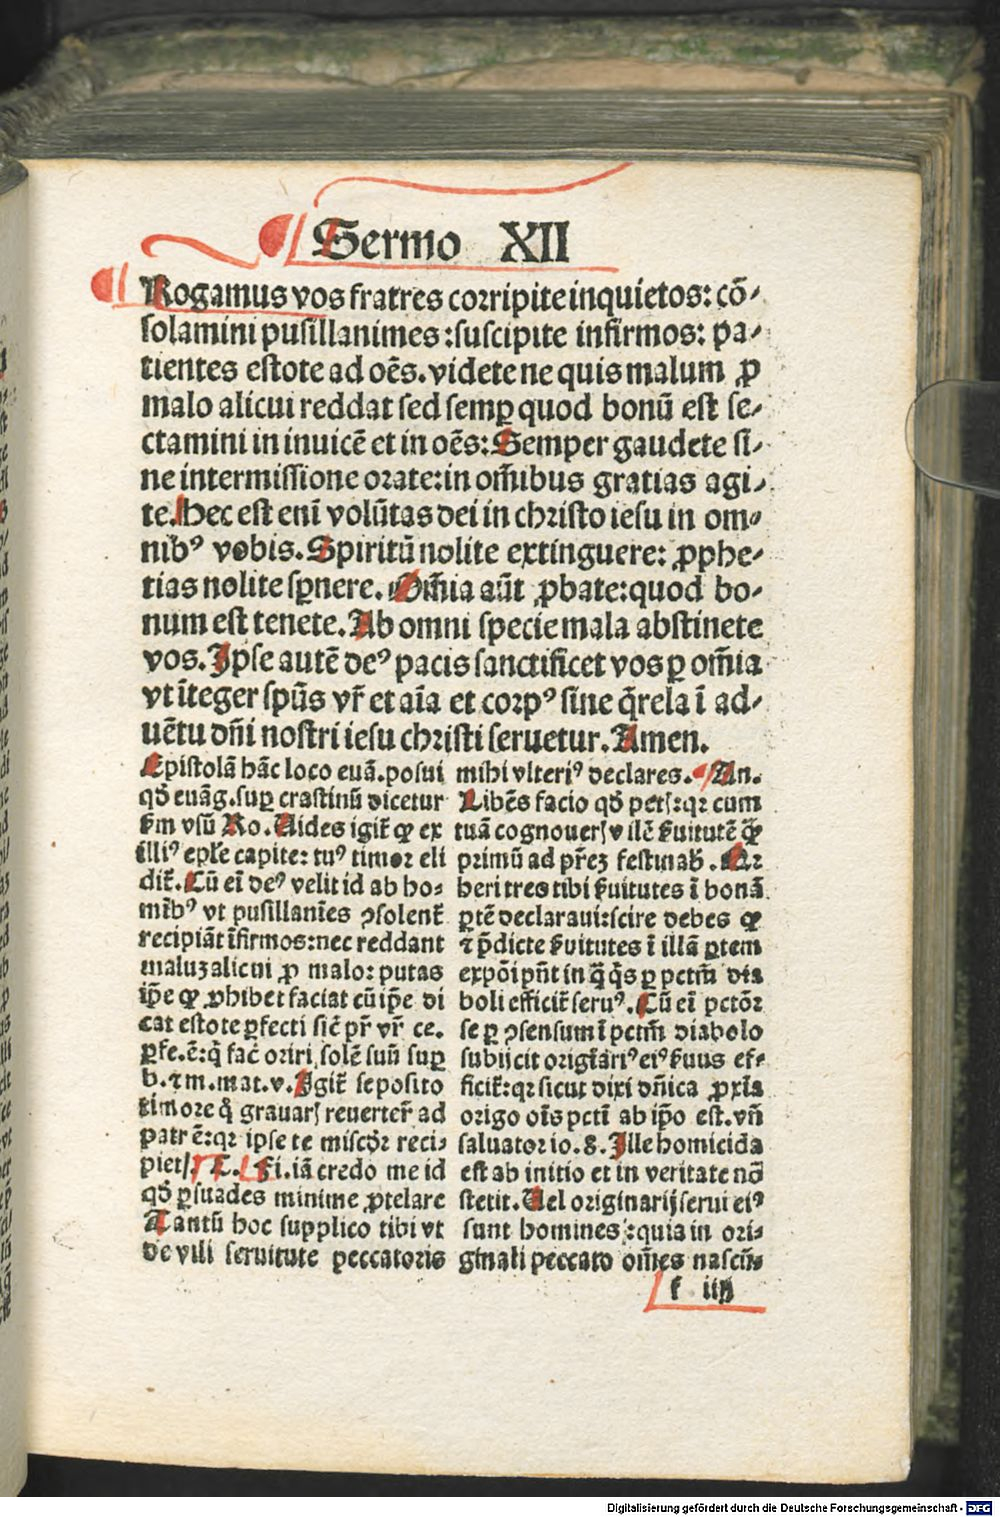 Sermo XII
Rogamus vos fratres corripite inquietos: cõ⸗
solamini pusillanimes :suscipite infirmos: pa⸗
tientes estote ad oẽs. videte ne quis malum ꝓ
malo alicui reddat sed semꝑ quod bonũ est se⸗
ctamini in inuicẽ et in oẽs: Semper gaudete si⸗
ne intermissione orate: in om̃ibus gratias agi⸗
te. Hec est eni̅ volũtas dei in christo iesu in om⸗
nibꝰ vobis. Spiritũ nolite extinguere: ꝓphe⸗
tias nolite sꝑnere. Om̃ia aũt ꝓbate: quod bo⸗
num est tenete. Ab omni specie mala abstinete
vos. Ipse autẽ deꝰ pacis sanctificet vos ꝑ om̃ia
vt i̅teger spũs vr̃ et ai̅a et corpꝰ sine q̃rela i̅ ad⸗
uẽtu dñi nostri iesu christi seruetur. Amen.
Epistolã hãc loco euã. posui
qđ euãg. suꝑ crastinũ dicetur
ẜm vsũ Ro. Uides igit̃ ꝙ ex
illiꝰ ep̃le capite: tuꝰ timor eli
dit̃. Cũ ei̅ deꝰ velit id ab ho⸗
mi̅bꝰ vt pusillani̅es ꝯsolent̃
recipiãt i̅firmos: nec reddant
maluꝫ alicui ꝓ malo: putas
ip̃e ꝙ ꝓhibet faciat cũ ip̃e di
cat estote ꝑfecti sic̃ pr̃ vr̃ ce.
ꝑfe. ẽ: q̃ fac̃ oriri solẽ suũ suꝑ
b. ⁊ m. mat. v. Igit̃ seposito
timore q̃ grauarꝭ reuerter̃ ad
patrẽ: qꝛ ipse te miscđr reci⸗
pietꝭ. C. Fi. iã credo me id
qđ ꝑsuades minime ꝓtelare
Tantũ hoc supplico tibi vt
de vili seruitute peccatoris
mihi vlteriꝰ declares. An.
Libẽs facio qđ petꝭ: qꝛ cum
tuã cognouerꝭ vilẽ ẜuitutẽ q̃ꝫ
primũ ad pr̃eꝫ festinab. Ar
beri tres tibi ẜuitutes i̅ bonã
ꝑtẽ declaraui: scire debes ꝙ
⁊ p̃dicte ẜuitutes i̅ illã ꝑtem
expõi pñt in q̃ q̃s ꝑ pctm̃ dia
boli efficit̃ seruꝰ. Cũ ei̅ pctõr
se ꝑ ꝯsensum i̅ pctm̃ diabolo
subijcit origi̅ariꝰ eiꝰ ẜuus ef⸗
ficit̃: qꝛ sicut dixi dñica ꝓxi̅a
origo ois̃ pcti̅ ab ip̃o est. vñ
saluator io. 8. Ille homicida
est ab initio et in veritate nõ
stetit. Uel originarij serui eiꝰ
sunt homines: quia in ori⸗
ginali peccato om̃es nascũ⸗
f iiij
Digitalisierung gefördert durch die Deutsche Forschungsgemeinschaft - DFG